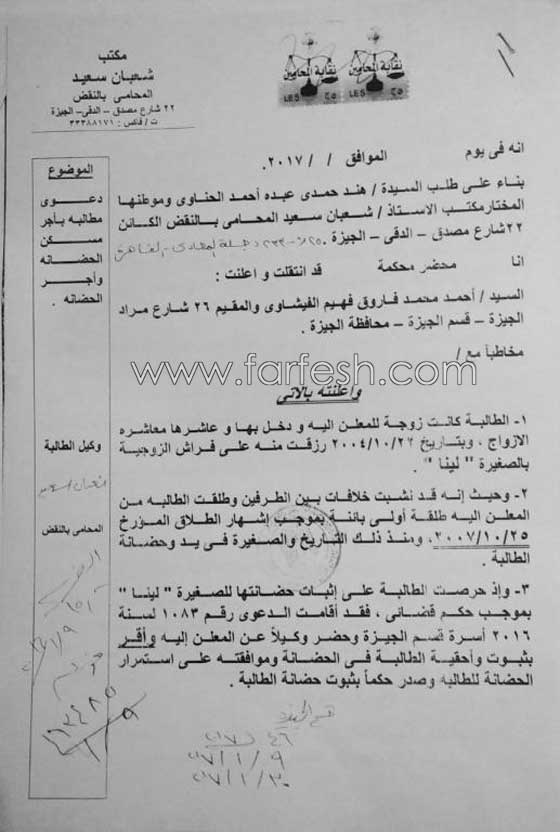 مكتب
شعبان سعيد
المحامى بالنقض
٢٢ شارع مصدق – الدقى – الجيزة
ت/ فاكس : ٣٣٣٨٨١٧١
نقابة المحامين
نقابة المحامين
LE5 ج٥
LE5 ج٥
انه فى يوم الموافق / / ٢٠١٧.
بناء على طلب السيدة / هند حمدى عبده أحمد الحناوى وموطنها
المختار مكتب الاستاذ / شعبان سعيد المحامى بالنقض الكائن
٢٢ شارع مصدق – الدقى – الجيزة .
انا محضر محكمة قد انتقلت و اعلنت :
السيد / أحمد محمد فاروق فهيم الفيشاوى والمقيم ٢٦ شارع مراد
الجيزة – قسم الجيزة – محافظة الجيزة .
مخاطباً مع /
www.farfesh.com
واعلنته بالآتى
١- الطالبة كانت زوجة للمعلن اليه و دخل بها و عاشرها معاشره
الازواج ، وبتاريخ ٢٠٠٤/١٠/٢٦ رزقت منه على فراش الزوجية
بالصغيرة " لينا " .
٢- وحيث إنه قد نشبت خلافات بين الطرفين وطلقت الطالبه من
المعلن اليه طلقة أولى بائنة بموجب إشهار الطلاق المؤرخ
٢٠٠٧/١٠/٢٥، ومنذ ذلك التاريخ والصغيرة فى يد وحضانة
الطالبة .
٣- وإذ حرصت الطالبة على إثبات حضانتها للصغيرة " لينا "
بموجب حكم قضائى ، فقد أقامت الدعوى رقم ١٠٨٣ لسنة
٢٠١٦ أسرة قسم الجيزة وحضر وكيلاً عن المعلن إليه وأقر
بثبوت وأحقية الطالبة فى الحضانة وموافقته على استمرار
الحضانة للطالبه وصدر حكماً بثبوت حضانة الطالبة .
الموضوع
دعوى
مطالبه بأجر
مسكن
الحضانه
وأجر
الحضانه .
وكيل الطالبة
المحامى بالنقض